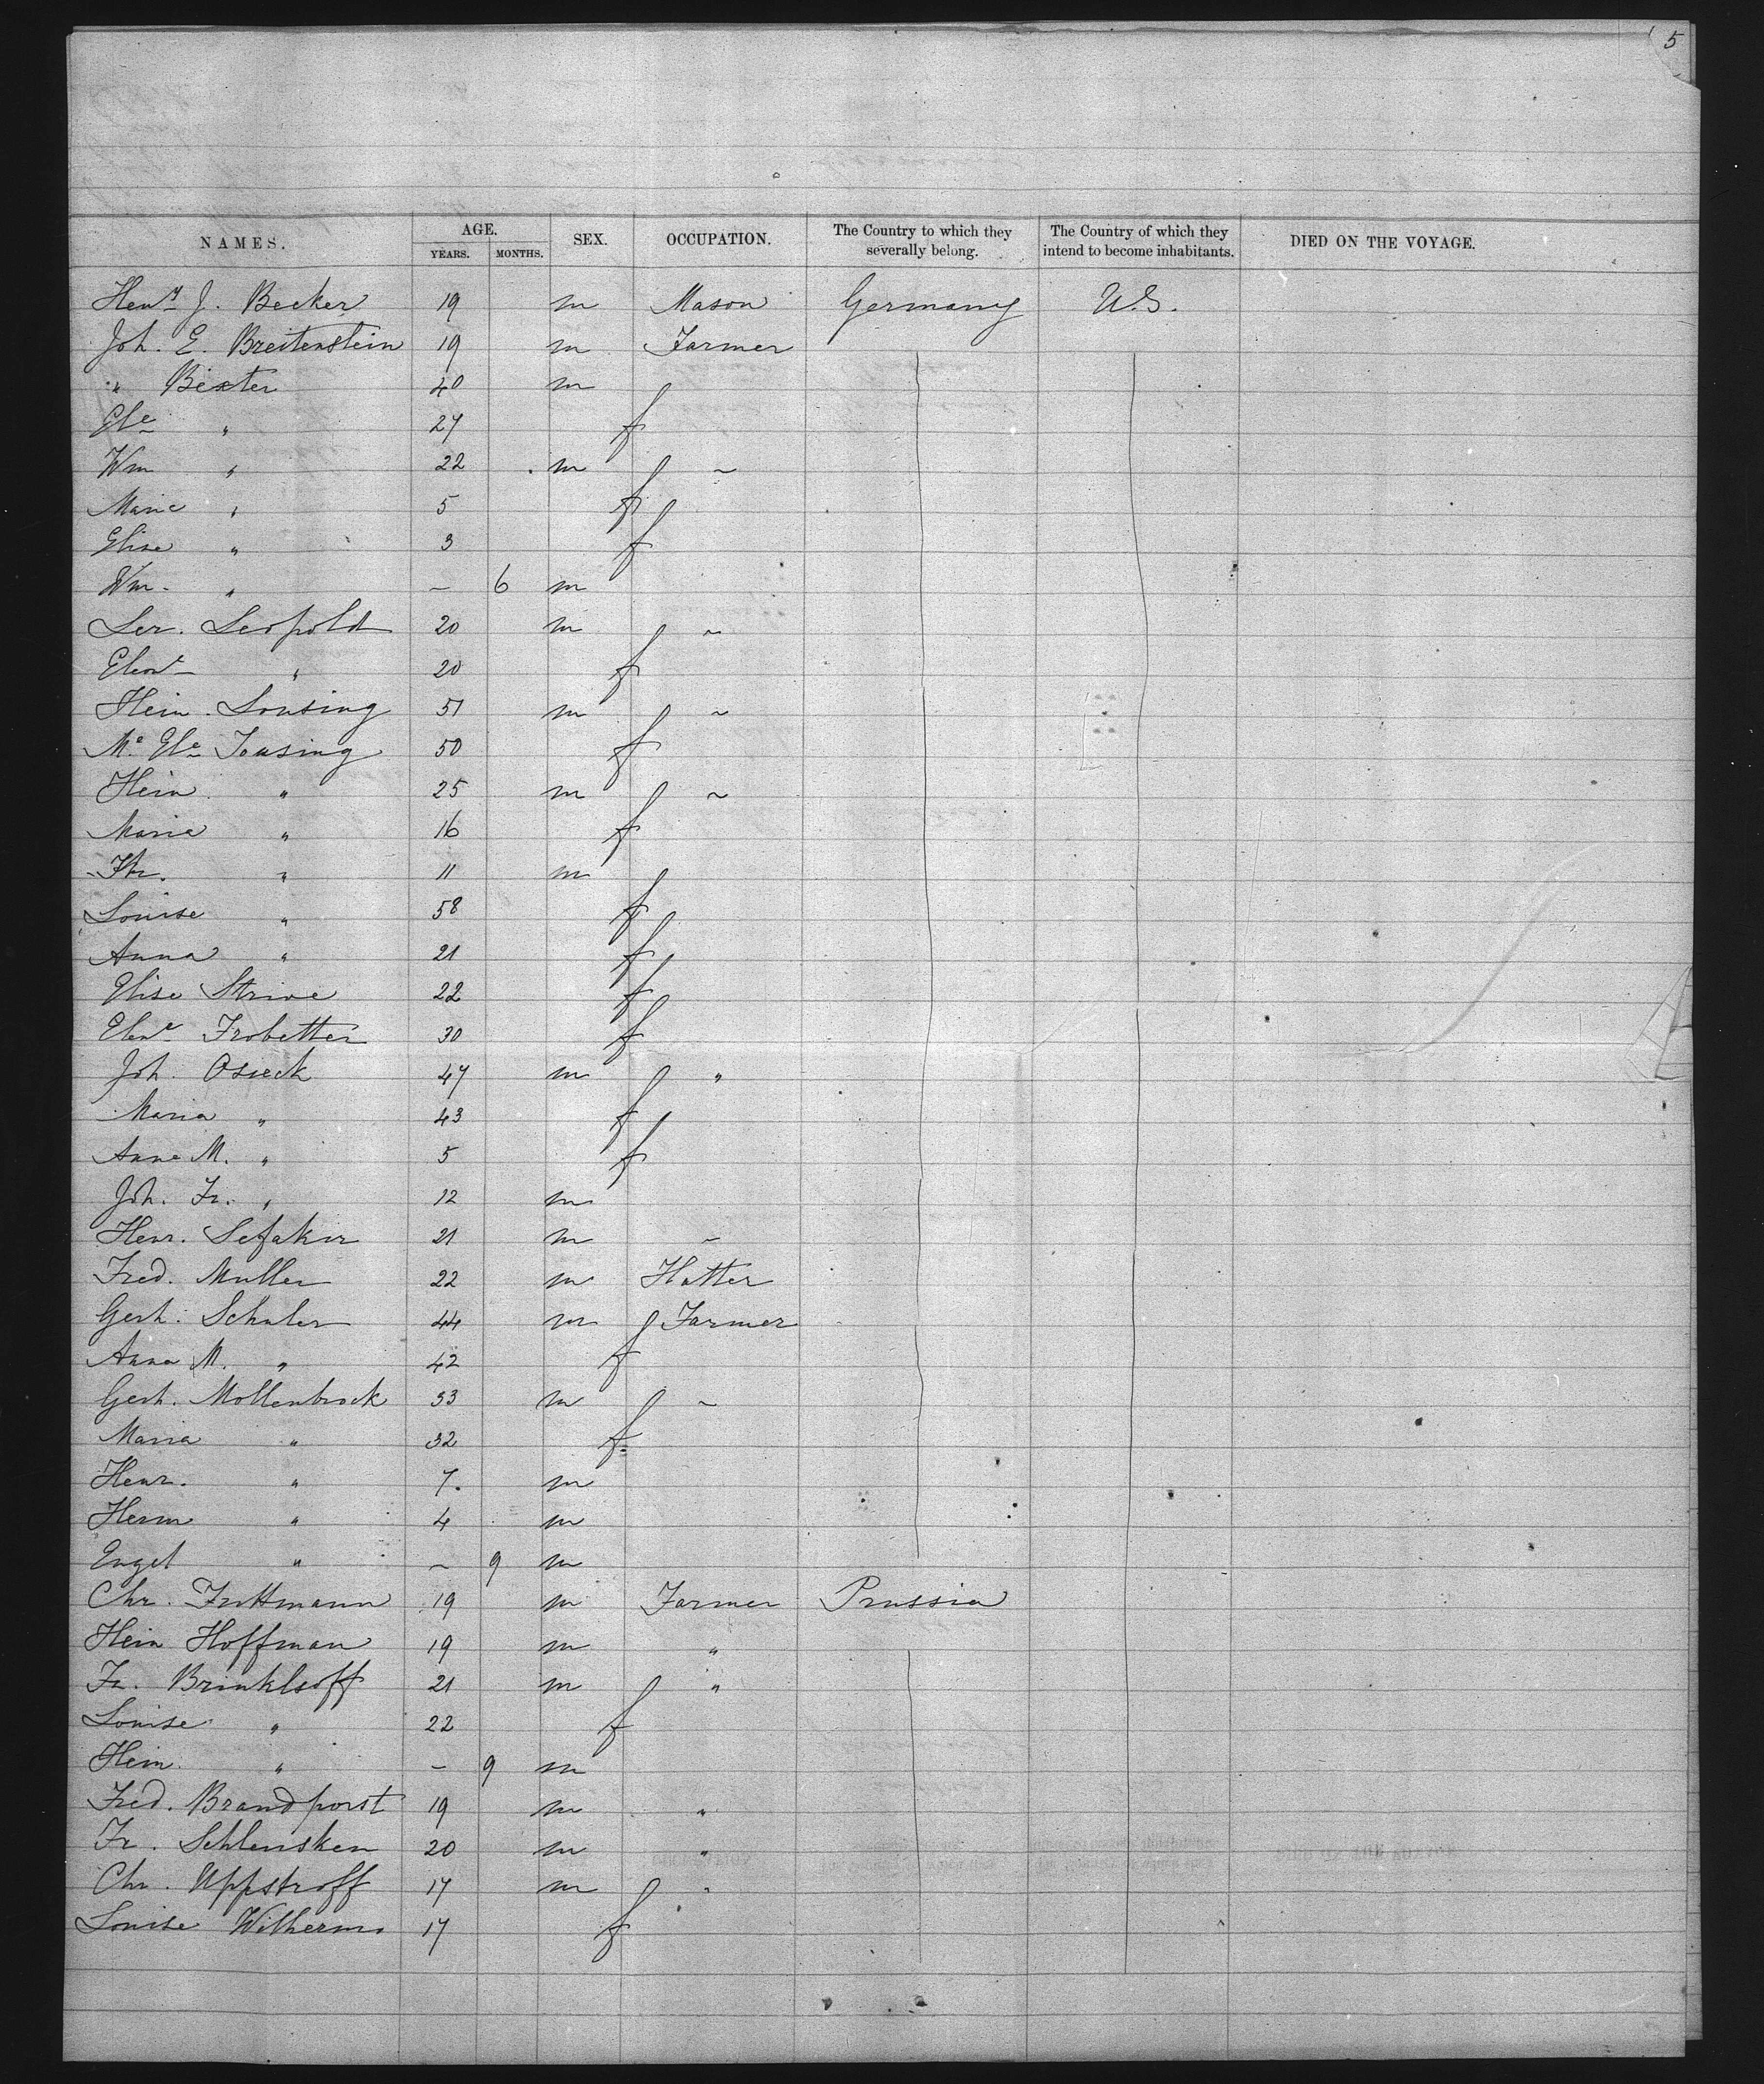 5
NAMES. AGE. YEARS. MONTHS. SEX. OCCUPATION. The Country to which they severally belong. The Country of which they intend to become inhabitants. DIED ON THE VOYAGE.
Henry J. Becker 19 m Mason Germany U.S.
Joh. E. Breitenstein 19 m Farmer
" Bexter 40 m
Ele " 27 f
Wm " 22 m ~
Marie " 5 f
Elise " 3 f
Wm. " – 6 m
Ler. Leopold 20 m ~
" 20 f
Hein. Lonsing 51 m ~
Me Ele Tousing 50 f
Hein. " 25 m ~
Maria " 16 f
Fr. " 11 m
Louise " 58 f
Anna " 21 f
Elise Strive 22 f
Frobetter 30 f
Joh. Osieck 47 m "
Maria " 43 f
Anna M. " 5 f
Joh. Fr. " 12 m
Henr. 21 m ~
Fred. Muller 22 m Hatter
Gerh. Schuler 44 m Farmer
Anna M. " 42 f
Gerh. Mollenbrock 33 m ~
Maria " 32 f
Henr. " 7. m
Herm " 4 m
Engel " – 9 m
Chr. 19 m Farmer Prussia
Hein Hoffman 19 m "
Fr. Brinkhoff 21 m "
Louise " 22 f
Hein. " – 9 m
Fred. Brandhorst 19 m "
Fr. Schlensken 20 m "
Chr. Uppstroff 17 m "
Louise Witherms 17 f